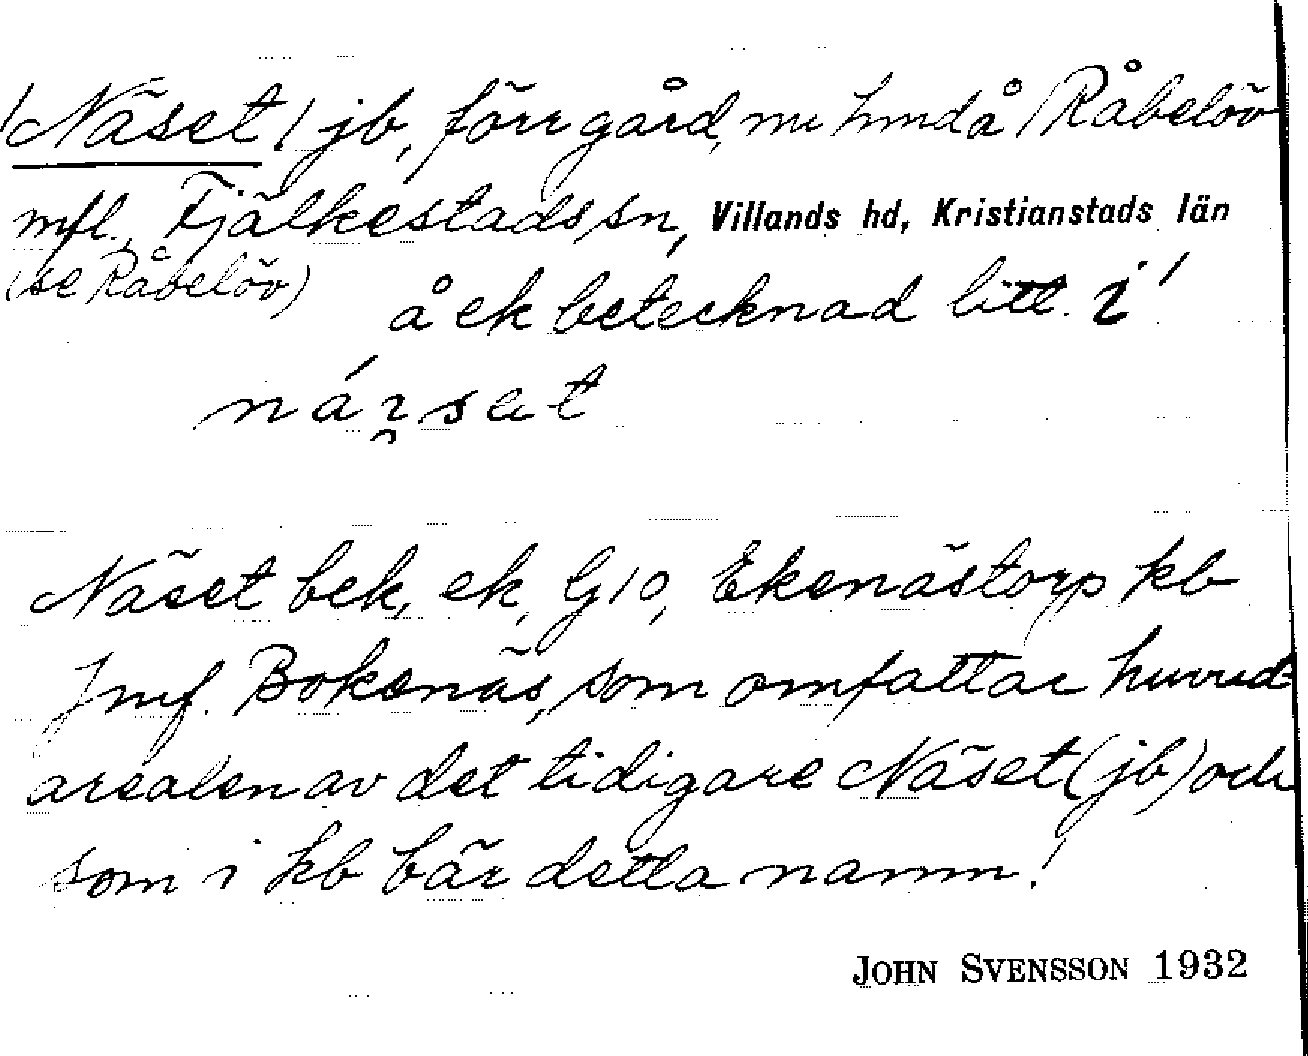 (Näset) jb, förr gård, nu hmdå (Råbelöv
mfl., Fjälkestads sn, Villands hd, Kristianstads län
(se Råbelöv)
å ek betecknad litt. i!
Näset bek, ek, G10, Ekenästorp kb
Jmf. Bokenäs, som omfattar huvud-
arealen av det tidigare Näset (jb) och
som i kb bär detta namn!
JOHN SVENSSON 1932